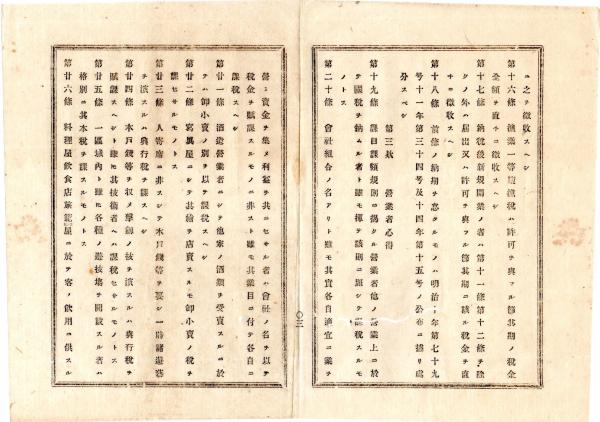 ニ之ヲ徴收スヘシ
第十六條 漁業一等鑑税ハ許可ヲ與フル節其期ノ税金
全額ヲ直チニ徴收スヘシ
第十七條 納税後新規開業ノ者ハ第十一條第十二條ヲ除
クノ外ハ届出又ハ許可ヲ與フル節其期ニ該ル税金ヲ直
チニ徴收スヘシ
第十八條 前條ノ納期ヲ怠タルモノハ明治 年第七十九
号十一年第三十四号及十四年第十五号ノ公布ニ據リ處
分スベシ
第三欵 營業者心得
第十九條 課目課額規則ニ揭クル營業者他ノ營業上ニ於
テ國税ヲ納ムル者ト雖モ揮テ該則ニ照シテ課税スルモ
ノトス
第二十條 會社組合ノ名アリト雖モ其實各自適宜ニ業ヲ
營ミ資金ヲ集メ利益ヲ共ニセサル者ハ會社ノ名ヲ以テ
税金ヲ賦課スルモノニ非スト雖モ其業目ニ付テ各自ニ
課税スヘシ
第廿一條 酒造營業者ニシテ他家ノ酒類ヲ受賣スルニ於
テハ卸小賣ノ別ヲ以テ課税スヘシ
第廿二條 寫眞屋ニシテ其繪ヲ店賣スルモ卸小賣ノ税ヲ
課セサルモノトス
第廿三條 人寄席ニ非スシテ木戸錢等ヲ要シ一時諸遊藝
ヲ演スルハ興行税ヲ課スヘシ
第廿四條 木戸錢等ヲ收メ擊劍ノ技ヲ演スルハ興行税ヲ
賦課スヘシト雖モ其技術者ヘハ課税セサルモノトス
第廿五條 一區域内ト雖モ各種ノ遊技塲ヲ開設スル者ハ
格別ニ其本税ヲ課スルモノトス
第廿六條 料理屋飲食店旅籠屋ニ於テ客ノ飲用ニ供スル
〇三